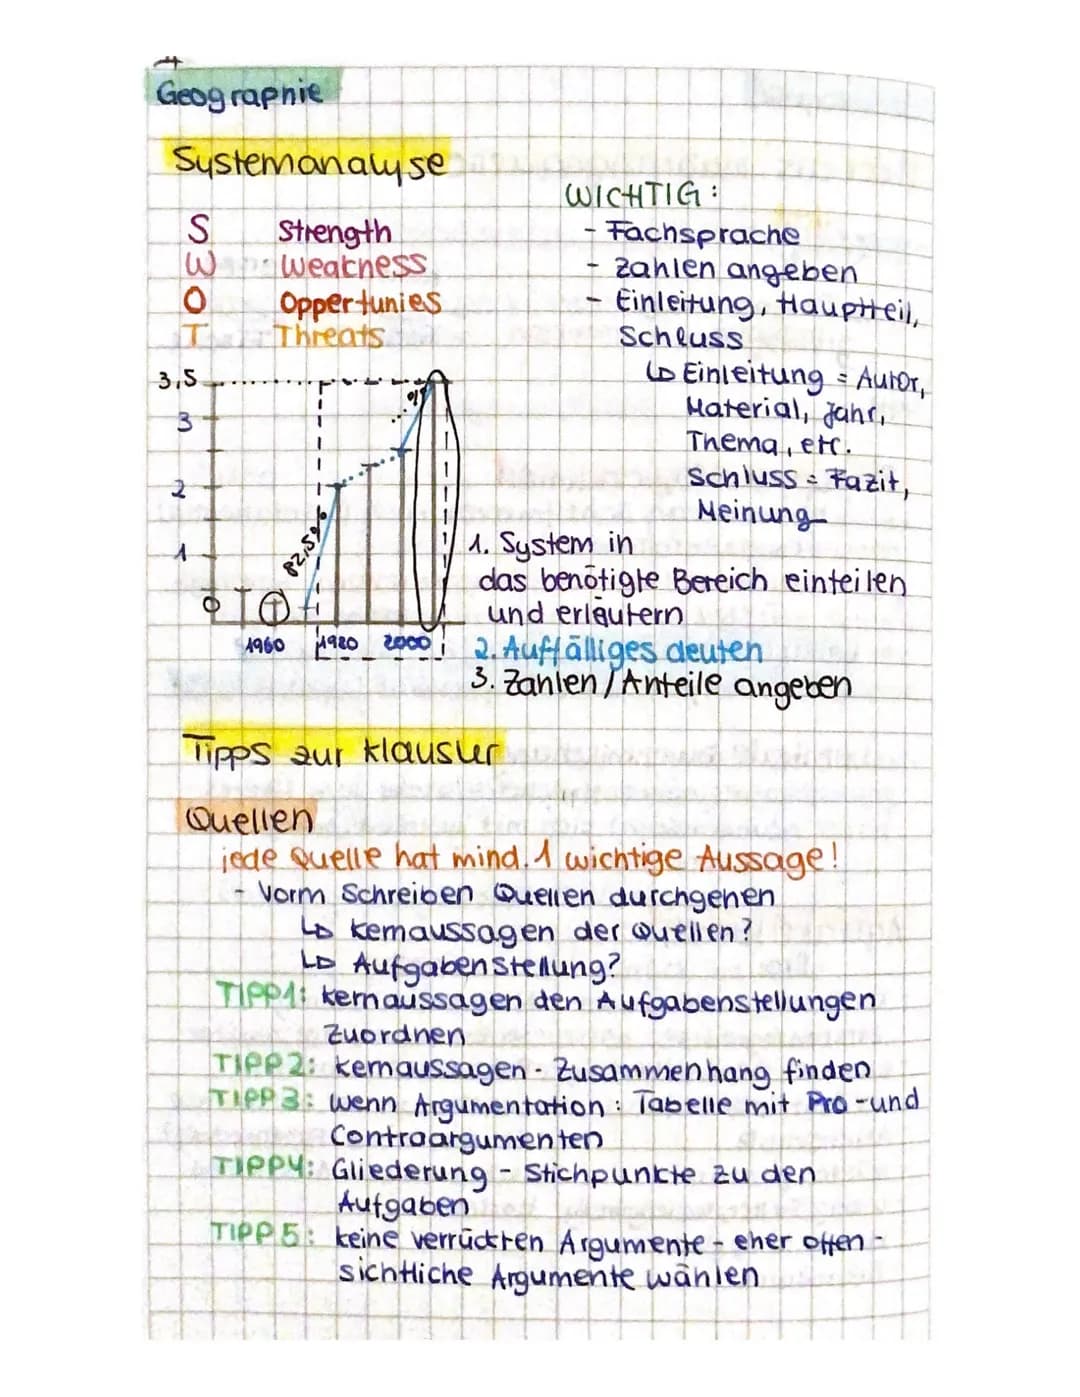 Geographie
Systemanalyse
S Strength
W Weakness
O Oppertunies
T Threats
WICHTIG:
- Fachsprache
- Zahlen angeben
- Einleitung, Hauptteil,
Schluss
↳ Einleitung = Autor,
Material, Jahr,
Thema, etc.
Schluss = Fazit,
Meinung
3,5
3
2
1
0
82,5%
1960 1980 2000
1. System in
das benötigte Bereich einteilen
und erläutern
2. Auffälliges deuten
3. Zahlen / Anteile angeben
Tipps zur Klausur
Quellen
jede Quelle hat mind. 1 wichtige Aussage!
- Vorm Schreiben Quellen durchgehen
↳ Kernaussagen der Quellen?
↳ Aufgabenstellung?
TIPP1: Kernaussagen den Aufgabenstellungen
zuordnen
TIPP 2: Kernaussagen - Zusammenhang finden
TIPP 3: wenn Argumentation: Tabelle mit Pro-und
Contraargumenten
TIPP4: Gliederung - Stichpunkte zu den
Aufgaben
TIPP 5: keine verrückten Argumente - eher offen-
sichtliche Argumente wählen